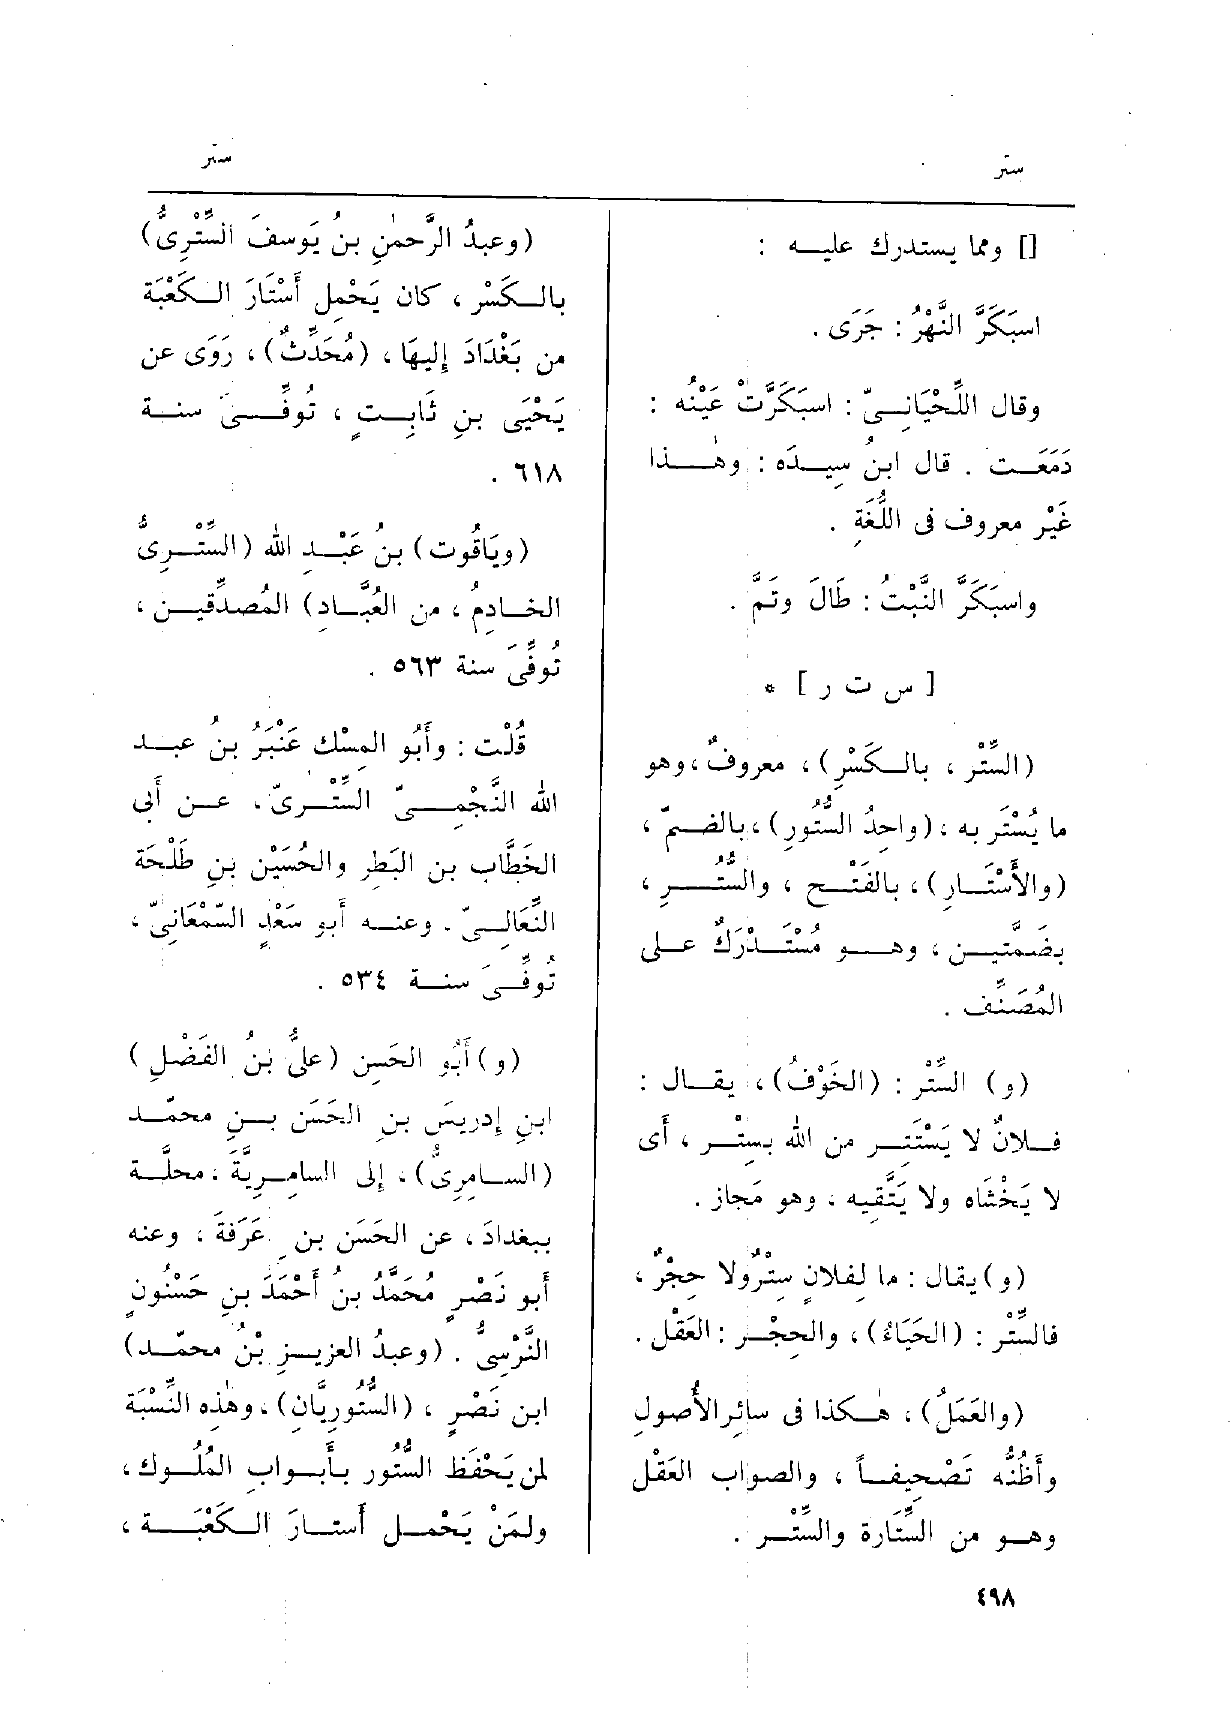 ستر
ستر
[] ومما يستدرك عليـه :
اسبَكَرَّ النَّهْرُ : جَرَى .
وقال اللِّحْيَانِـىّ : اسبَكَرَّتْ عَيْنُه :
دَمَعَت . قال ابنُ سِيدَه : وهٰـذا
غَيْر معروف فى اللُّغَةِ .
واسبَكَرَّ النَّبْتُ : طَالَ وتَمَّ .
[ س ت ر ] *
(السِّتْر ، بالـكَسْرِ) ، معروفٌ ، وهو
ما يُسْتَر به ، (واحِدُ السُّتُورِ) ، بالضمّ ،
(والأَسْتَـارِ) ، بالفَتْـح ، والسُّتُـرِ ،
بضَمَّتيـن ، وهـو مُسْتَـدْرَكٌ علـى
المُصَنِّف .
(و) السِّتْر : (الخَوْفُ) ، يقـال :
فـلانٌ لا يَسْتَتِـر من الله بسِتْـر ، أَى
لا يَخْشَاه ولا يَتَّقِيه ، وهو مَجاز .
(و) يقال : ما لِفلانٍ سِتْرٌ ولا حِجْرٌ ،
فالسِّتْر : (الحَيَاءُ) ، والحِجْـر : العَقْل .
(والعَمَلُ) ، هٰـكذا فى سائرِ الأُصولِ
وأَظُنُّه تَصْحيفـاً ، والصواب العَقْل
وهـو من السِّتَارة والسِّتْـر .
(وعبدُ الرَّحمٰنِ بنُ يُوسفَ السِّتْرِىُّ)
بالـكَسْر ، كان يَحْمِل أَسْتَارَ الـكَعْبَة
من بَغْدَادَ إليهَا ، (مُحَدِّثٌ) ، رَوَى عن
يَحْيَى بنِ ثَابِـت ، تُوفِّـىَ سنـة
٦١٨ .
(ويَاقُوت) بنُ عَبْـدِ الله (السِّتْـرِىُّ
الخـادِمُ ، من العُبَّـادِ) المُصدِّقِيـن ،
تُوفِّىَ سنة ٥٦٣ .
قُلْت : وأَبُو المِسْك عَنْبَرُ بنُ عبـد
الله النَّجْمِـىّ السِّتْـرىّ ، عـن أَبى
الخَطَّاب بن البَطِر والحُسَيْنِ بنِ طَلْحَة
النِّعَالِـىّ . وعنـه أبو سَعْدٍ السَّمْعَانىّ ،
تُوفِّـىَ سنـة ٥٣٤ .
(و) أَبُو الحَسنِ (علىُّ بنُ الفَضْلِ)
ابنِ إدريسَ بنِ الحَسَن بـنِ محمّـد
(السـامرِىُّ) ، إلى السامِـرِيَّةِ ، محلَّـة
ببغدادَ ، عن الحَسَن بن عَرَفَةَ ، وعنه
أَبو نَصْرٍ مُحَمَّدُ بنُ أَحْمَدَ بنِ حَسْنُونٍ
النَّرْسِىُّ . (وعبدُ العزيـزِ بْنُ محمّـد)
ابن نَصْرٍ ، (السُّتُورِيَّان) ، وهٰذه النِّسْبَة
لمن يَحْفَظ السُّتُور بأَبـواب المُلُـوك ،
ولمَنْ يَحْمِـل أَستـارَ الـكَعْبَـة ،
٤٩٨